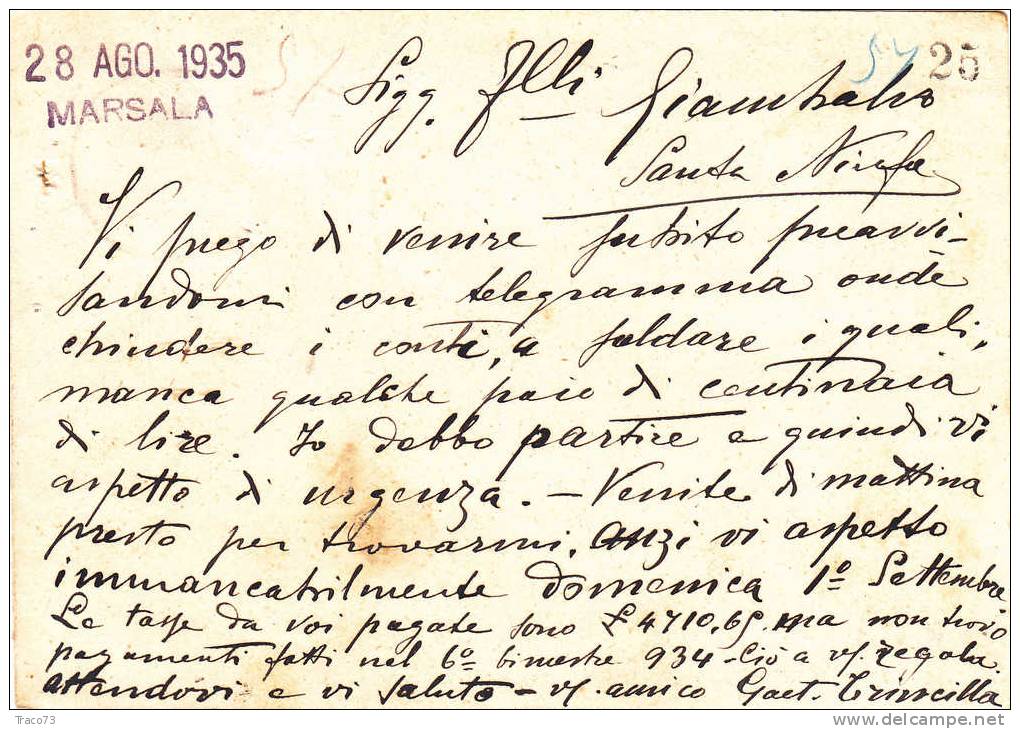 28 AGO. 1935
MARSALA
57 25
Sigg. Flli Giambalvo
Santa Ninfa
Vi prego di venire subito preavvi-
sandomi con telegramma onde
chiudere i conti, a saldare i quali,
manca qualche paio di centinaia
di lire. Io debbo partire e quindi vi
aspetto di urgenza. - Venite di mattina
presto per trovarmi. anzi vi aspetto
immancabilmente domenica 1º Settembre
Le tasse da voi pagate sono £ 4710,65 ma non trovo
pagamenti fatti nel 6º bimestre 934 - Ciò a vs. regola
attendovi e vi saluto - vs. amico Gaet.
Traco73
http://www.delcampe.net